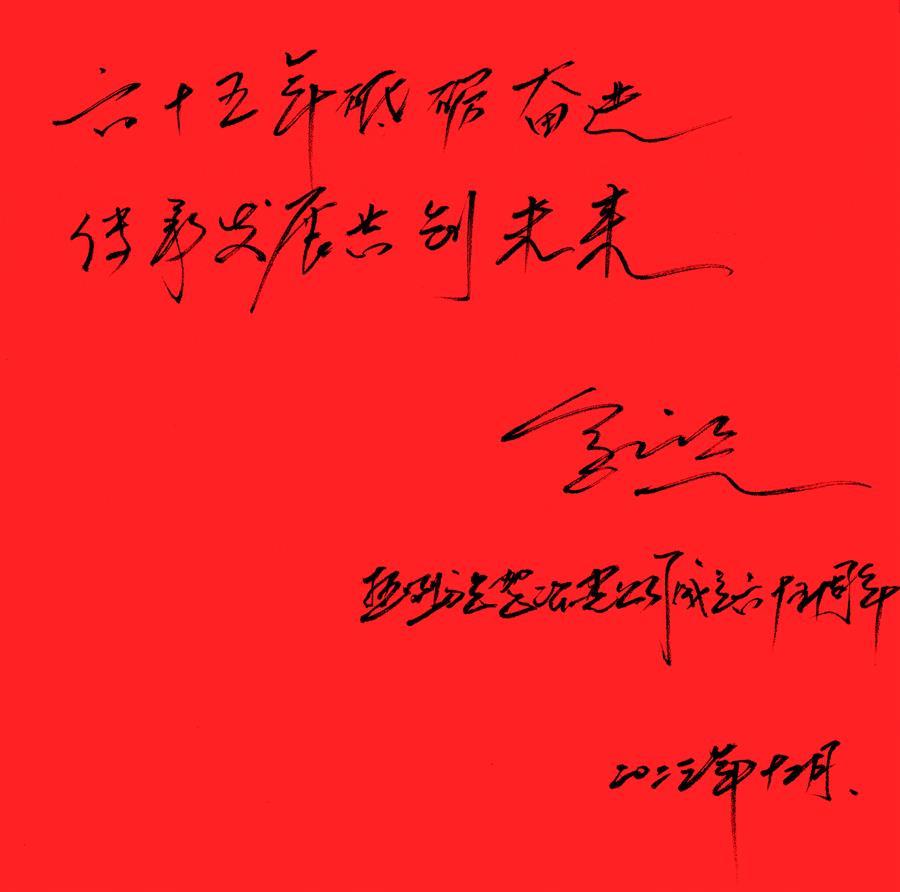 六十五年砥砺奋进
传承发展共创未来
热烈 公司成立六十五周年
二0二三年十二月.